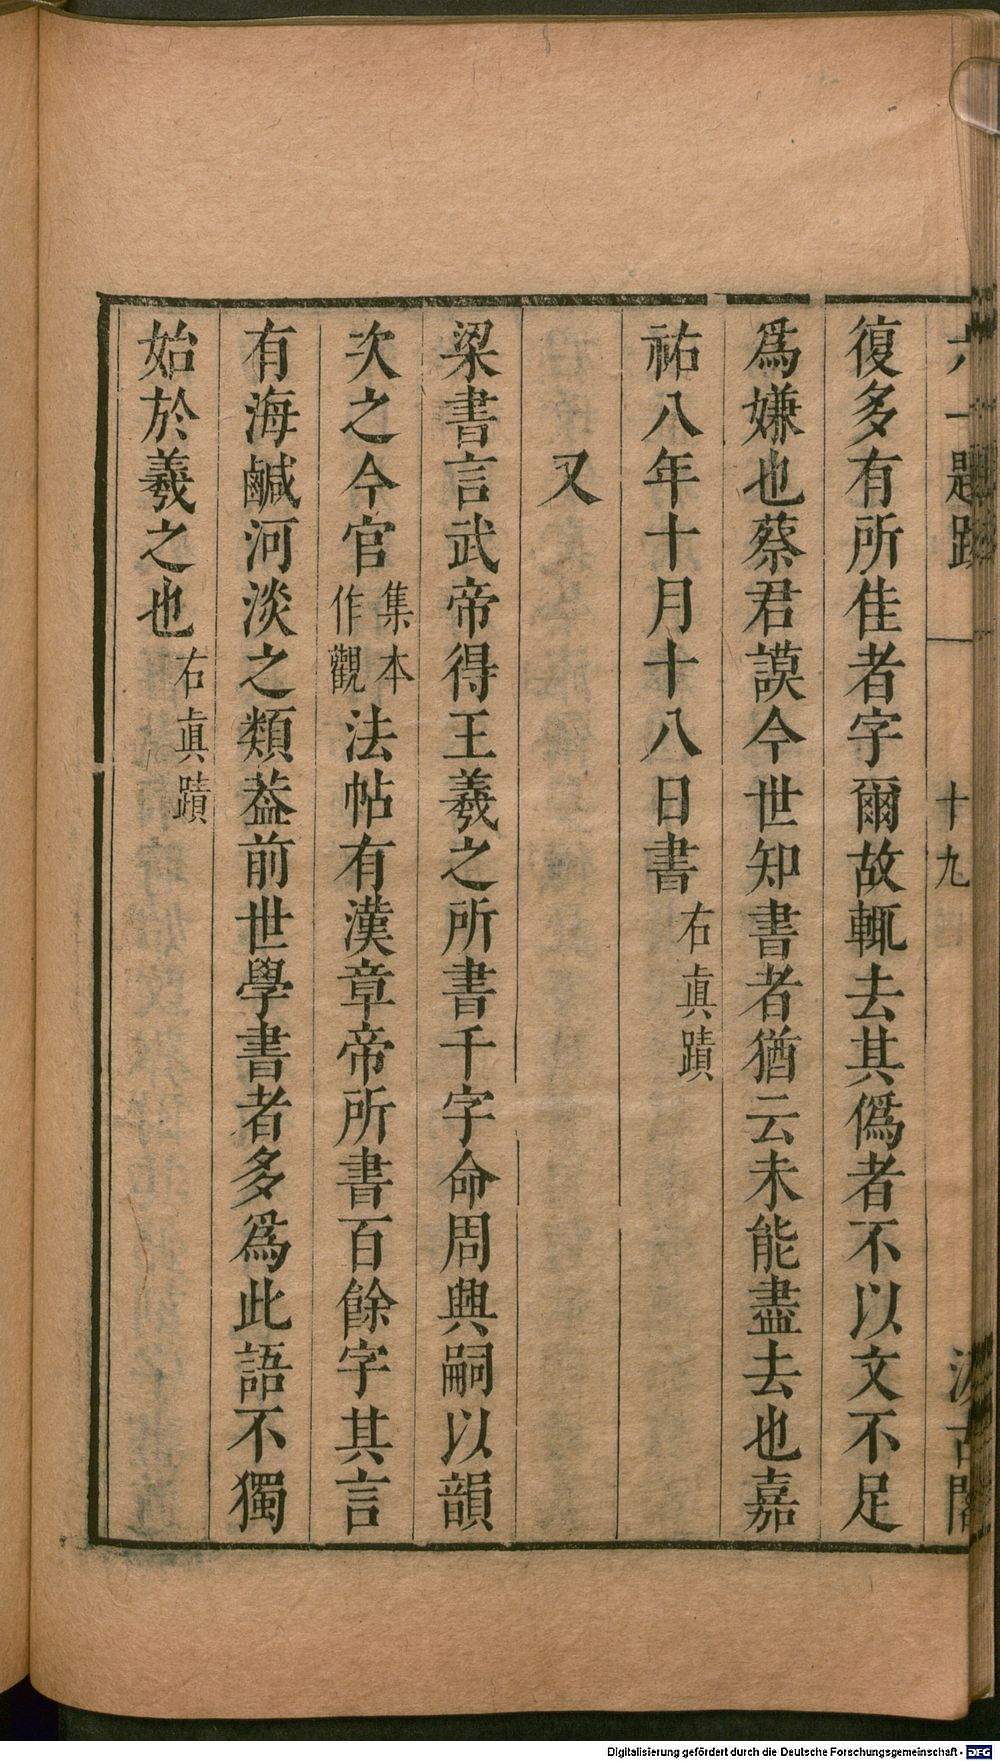 六一題跋 十九 汲古閣
復多有所佳者字爾故輒去其僞者不以文不足
爲嫌也蔡君謨今世知書者猶云未能盡去也嘉
祐八年十月十八日書右眞蹟
又
梁書言武帝得王羲之所書千字命周興嗣以韻
次之今官集本作觀法帖有漢章帝所書百餘字其言
有海鹹河淡之類葢前世學書者多爲此語不獨
始於羲之也右眞蹟
Digitalisierung gefördert durch die Deutsche Forschungsgemeinschaft - DFG